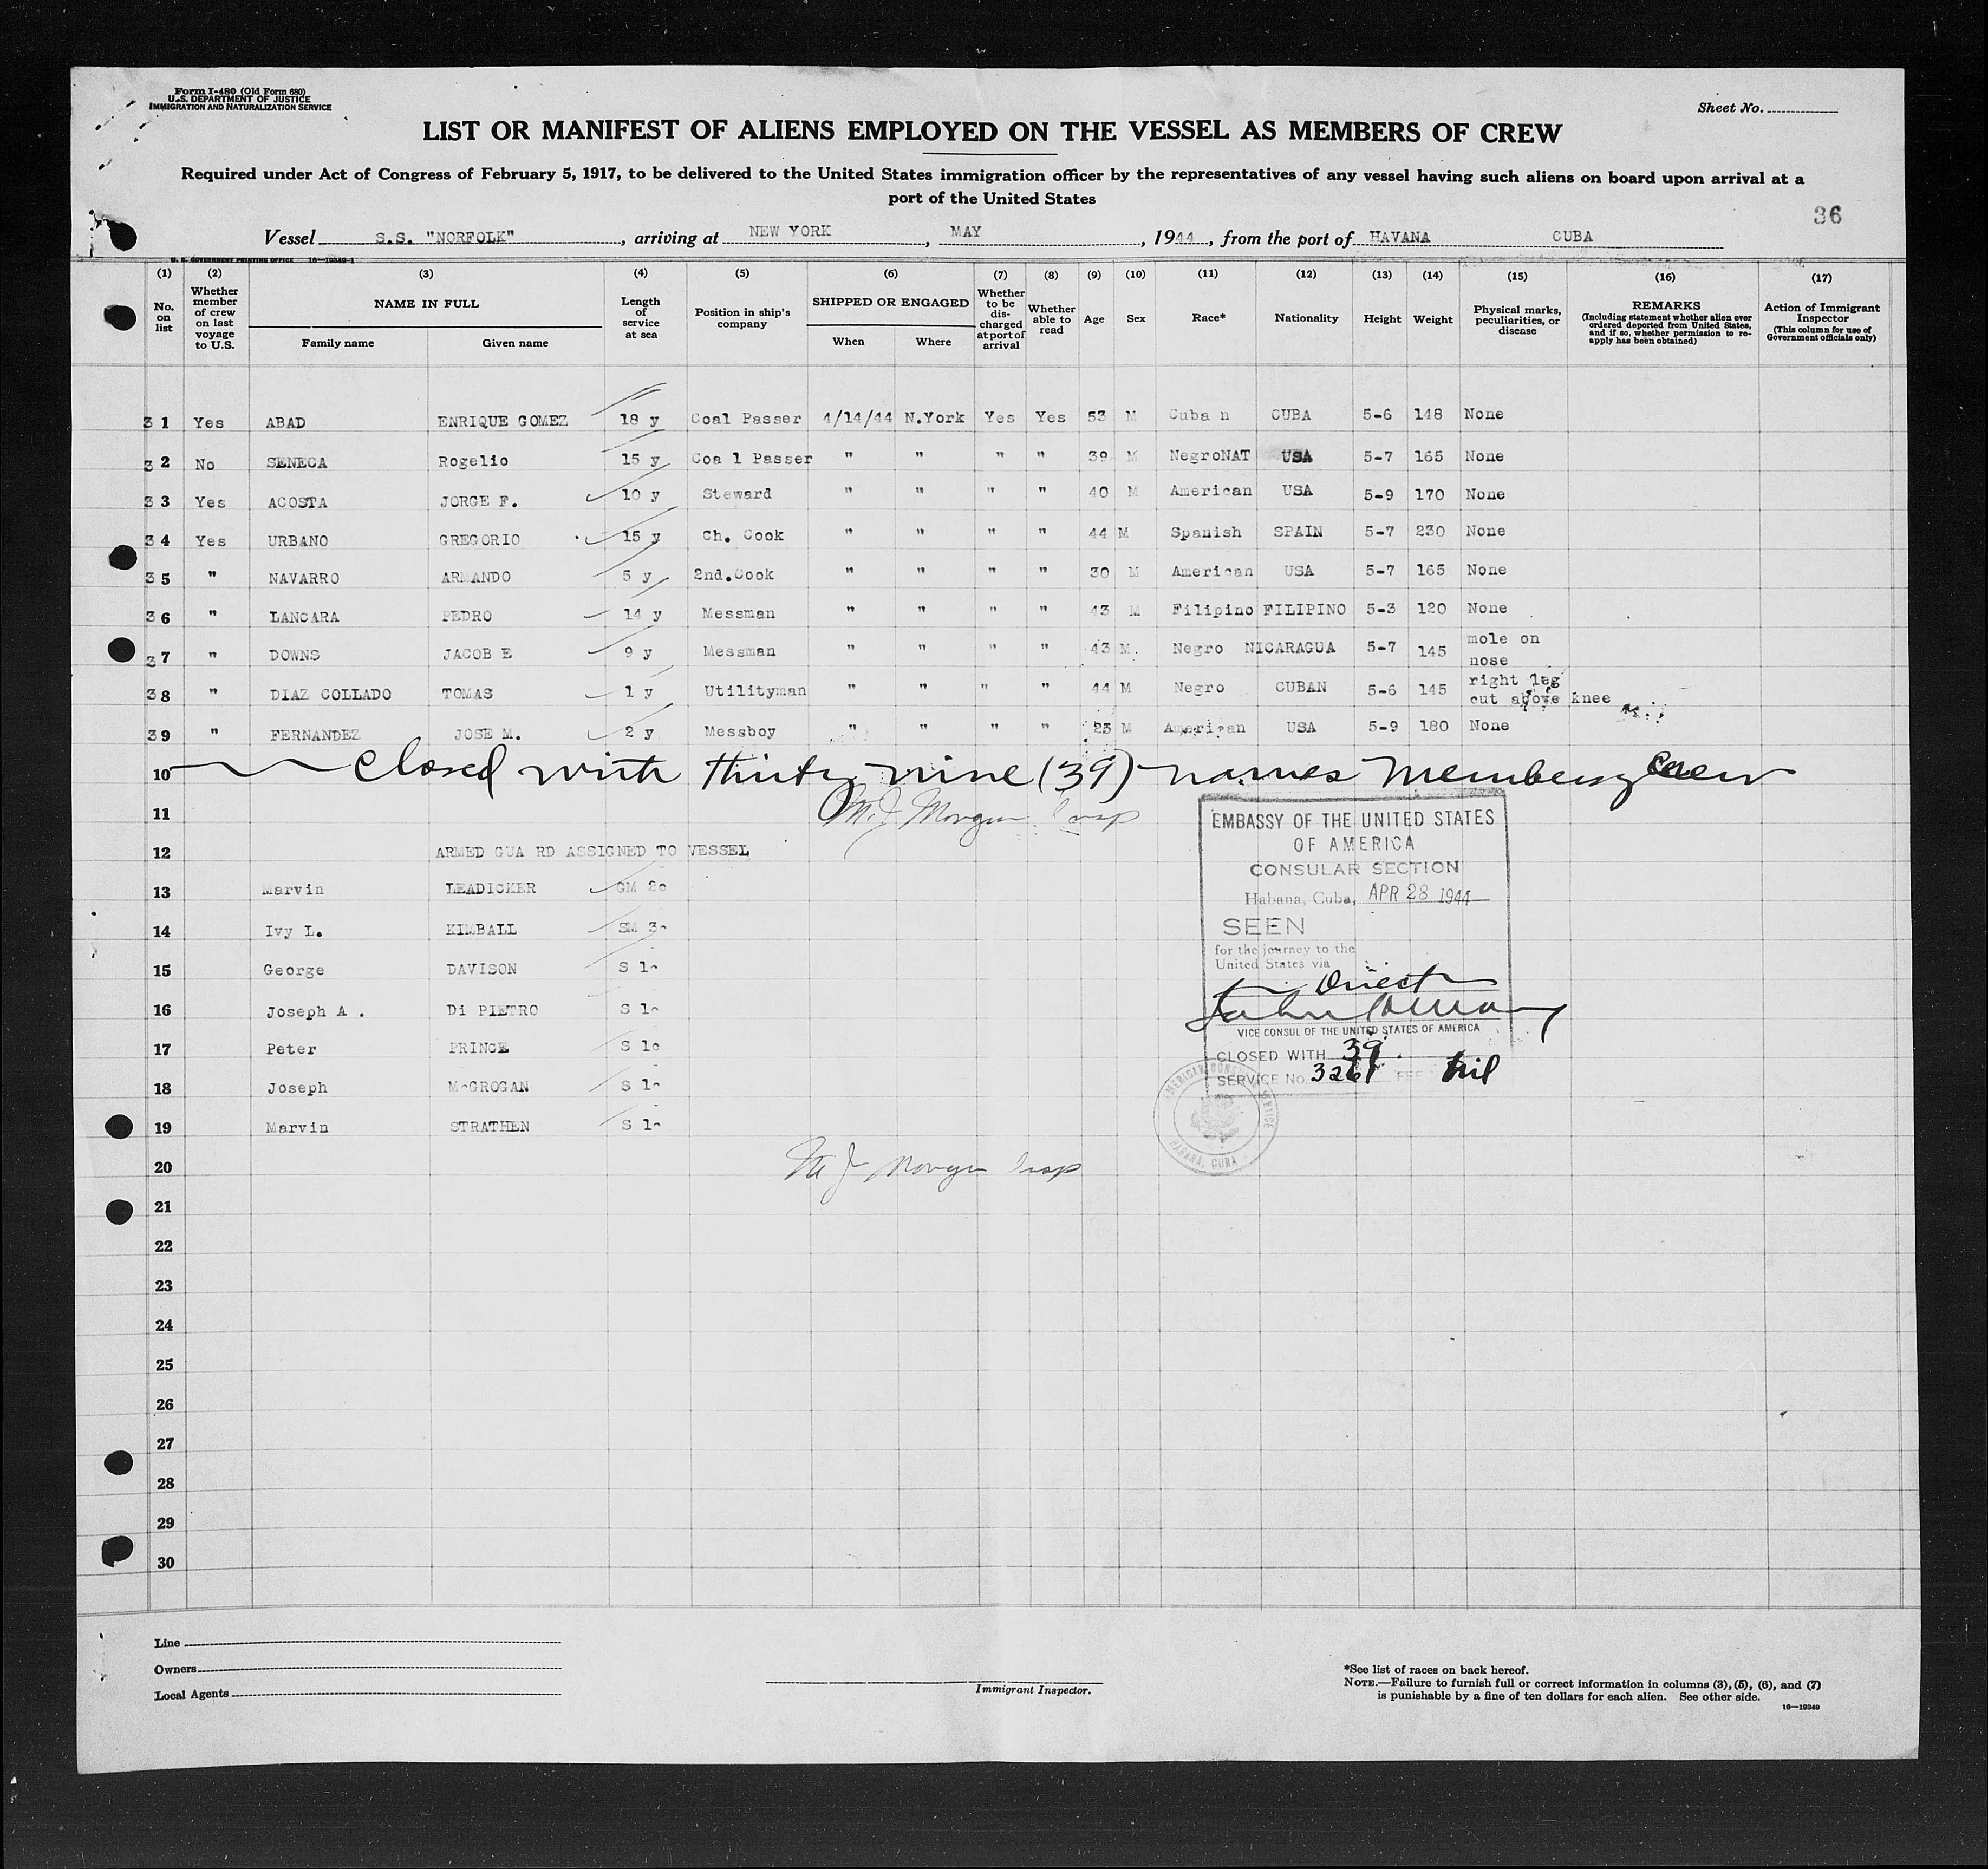 Form I-480 (Old Form 680)
U.S. DEPARTMENT OF JUSTICE
IMMIGRATION AND NATURALIZATION SERVICE
Sheet No.
LIST OR MANIFEST OF ALIENS EMPLOYED ON THE VESSEL AS MEMBERS OF CREW
Required under Act of Congress of February 5, 1917, to be delivered to the United States immigration officer by the representatives of any vessel having such aliens on board upon arrival at a
port of the United States
36
Vessel S.S. "NORFOLK", arriving at NEW YORK, MAY, 1944, from the port of HAVANA CUBA
U. S. GOVERNMENT PRINTING OFFICE 16-19349-1
(1) (2) (3) (4) (5) (6) (7) (8) (9) (10) (11) (12) (13) (14) (15) (16) (17)
No. on list
Whether member of crew on last voyage to U.S.
NAME IN FULL
Family name
Given name
Length of service at sea
Position in ship's company
SHIPPED OR ENGAGED
When
Where
Whether to be discharged at port of arrival
Whether able to read
Age
Sex
Race*
Nationality
Height
Weight
Physical marks, peculiarities, or disease
REMARKS
(Including statement whether alien ever ordered deported from United States, and if so, whether permission to reapply has been obtained)
Action of Immigrant Inspector
(This column for use of Government officials only)
31 Yes ABAD ENRIQUE GOMEZ 18 y Coal Passer 4/14/44 N.York Yes Yes 53 M Cuba n CUBA 5-6 148 None
32 No SENECA Rogelio 15 y Coa l Passer " " " " 39 M NegroNAT USA 5-7 165 None
33 Yes ACOSTA JORGE F. 10 y Steward " " " " 40 M American USA 5-9 170 None
34 Yes URBANO GREGORIO 15 y Ch. Cook " " " " 44 M Spanish SPAIN 5-7 230 None
35 " NAVARRO ARMANDO 5 y 2nd.Cook " " " " 30 M American USA 5-7 165 None
36 " LANCARA PEDRO 14 y Messman " " " " 43 M Filipino FILIPINO 5-3 120 None
37 " DOWNS JACOB E 9 y Messman " " " " 43 M. Negro NICARAGUA 5-7 145 mole on nose
38 " DIAZ COLLADO TOMAS 1 y Utilityman " " " " 44 M Negro CUBAN 5-6 145 right leg cut above knee
39 " FERNANDEZ JOSE M. 2 y Messboy " " " " 23 M American USA 5-9 180 None
10 Closed with thirty nine (39) names members crew
11 M. J. Morgan Insp
12 ARMED GUA RD ASSIGNED TO VESSEL
13 Marvin LEADICKER GM 2c
14 Ivy L. KIMBALL SM 3c
15 George DAVISON S 1c
16 Joseph A . Di PIETRO S 1c
17 Peter PRINCE S 1c
18 Joseph McGROGAN S 1c
19 Marvin STRATHEN S 1c
20 M J Morgan Insp
21
22
23
24
25
26
27
28
29
30
EMBASSY OF THE UNITED STATES
OF AMERICA
CONSULAR SECTION
Habana, Cuba, APR 28 1944
SEEN
for the journey to the
United States via
Direct
VICE CONSUL OF THE UNITED STATES OF AMERICA
CLOSED WITH 39.
SERVICE No. 3261 FEE nil
AMERICAN CONSULAR SERVICE
HABANA, CUBA
Line
Owners
Local Agents
Immigrant Inspector.
*See list of races on back hereof.
NOTE.—Failure to furnish full or correct information in columns (3), (5), (6), and (7)
is punishable by a fine of ten dollars for each alien. See other side.
16—19349